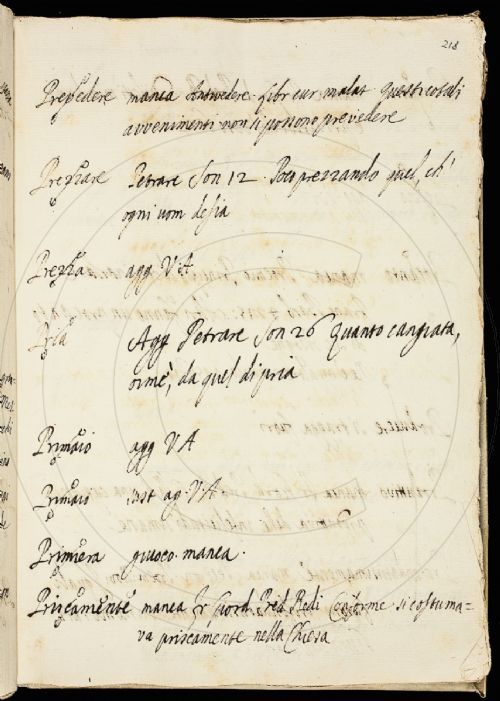 218
Prevedere manca Antivedere. Libr cur malat Questi cotali
avvenimenti non si possono prevedere
Prezzare Petrarc Son 12. Poco prezzando quel, ch'
ogni uom desia
agg V. A
Pria Agg Petrarc Son 26 Quanto cangiata,
oimè, da quel di pria
Primaio agg V A
Primaio V. A
Primiera giuoco. manca.
Priscamente manca Fr Giord Pred Redi Conforme si costuma=
va priscamente nella Chiesa